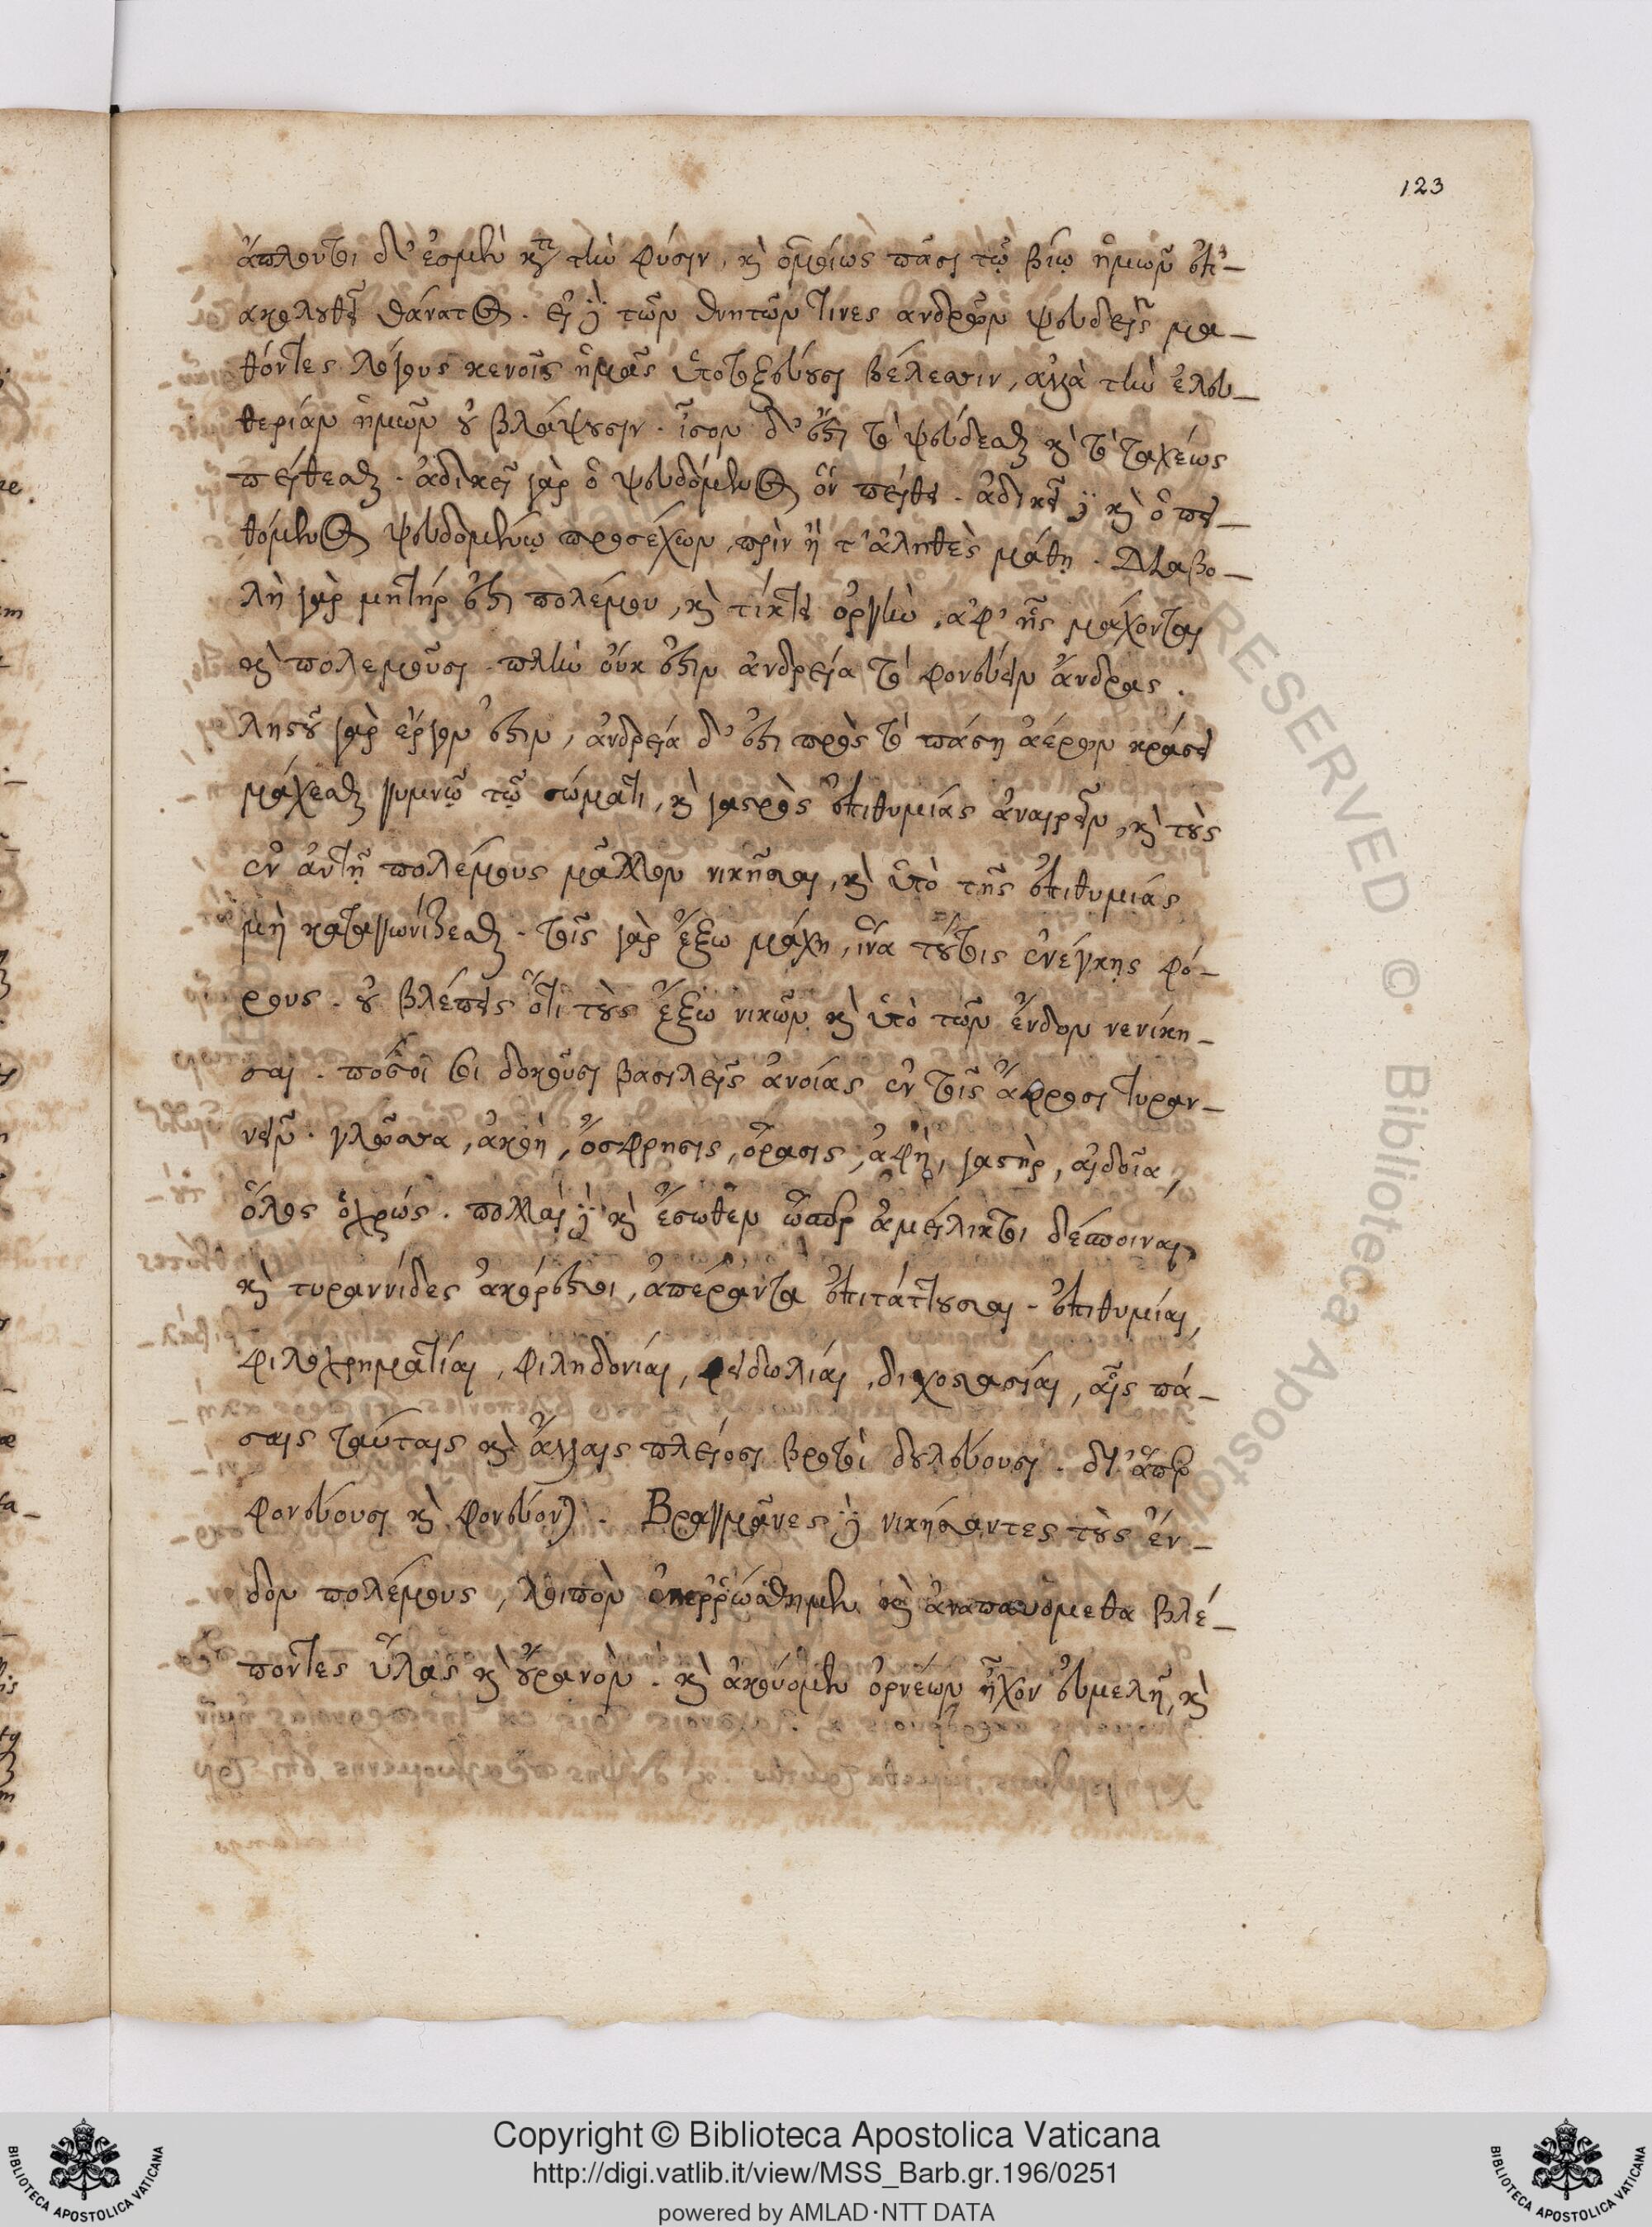 123
ἄπλουτοι δ' ἐσμὲν κατὰ τὴν φύσιν, καὶ ὁμοίως πᾶσι τῷ βίῳ ἡμῶν ἐπ-
ακολουθεῖ θάνατος. εἰ δὲ τῶν θνητῶν τινες ἀνδρῶν ψευδεῖς μα-
θόντες λόγους κενοῖς ἡμᾶς ὑποτοξεύουσι βέλεσιν, ἀλλὰ τὴν ἐλευ-
θερίαν ἡμῶν οὐ βλάψουσιν. ἶσον δ' ἐστὶ τὸ ψεύδεσθαι καὶ τὸ ταχέως
πείθεσθαι. ἀδικεῖ γὰρ ὁ ψευδόμενος ὃν πείθει. ἀδικεῖ δὲ καὶ ὁ πει-
θόμενος ψευδομένῳ προσέχων, πρὶν ἢ τ' ἀληθὲς μάθῃ. Διαβο-
λὴ γὰρ μήτηρ ἐστὶ πολέμου, καὶ τίκτει ὀργὴν, ἀφ' ἧς μάχονται
καὶ πολεμοῦσι. πλὴν οὐκ ἔστιν ἀνδρεία τὸ φονεύειν ἄνδρας.
λῃστοῦ γὰρ ἔργον ἐστιν, ἀνδρεία δ' ἐστὶ πρὸς τὸ πάσῃ ἀέρων κράσει
μάχεσθαι γυμνῷ τῷ σώματι, καὶ γαστρὸς ἐπιθυμίας ἀναιρεῖν, καὶ τοὺς
ἐν αὐτῇ πολέμους μᾶλλον νικῆσαι, καὶ ὑπὸ τῆς ἐπιθυμίας
μὴ καταγωνίζεσθαι. τοῖς γὰρ ἔξω μάχῃ, ἵνα τούτοις ἐνέγκῃς φό-
ρους. οὐ βλέπεις ὅτι τοὺς ἔξω νικῶν καὶ ὑπὸ τῶν ἔνδον νενίκη-
σαι. πόσοι σοι δοκοῦσι βασιλεῖς ἀνοίας ἐν τοῖς ἄφροσι τυραν-
νεῖν. γλῶσσα, ἀκοὴ, ὄσφρησις, ὅρασις, ἁφὴ, γαστὴρ, αἰδοῖα,
ὅλος ὁ χρώς. πολλαὶ δὲ καὶ ἔσωθεν ὥσπερ ἀμείλικτοι δέσποιναι
καὶ τυραννίδες ἀκόρεστοι, ἀπέραντα ἐπιτάττουσαι. ἐπιθυμίαι,
φιλοχρηματίαι, φιληδονίαι, φειδωλίαι, διχοστασίαι, αἷς πά-
σαις ταύταις καὶ ἄλλαις πλείοσι βροτοὶ δουλεύουσι. δι' ἅπερ
φονεύουσι καὶ φονεύονται. Βραγμᾶνες δὲ νικήσαντες τοὺς ἔν-
δον πολέμους, λοιπὸν ἐπερρώσθημεν καὶ ἀναπαυόμεθα βλέ-
ποντες ὕλας καὶ οὐρανὸν. καὶ ἀκούομεν ὀρνέων ἦχον εὐμελῆ, καὶ
Copyright © Biblioteca Apostolica Vaticana
http://digi.vatlib.it/view/MSS_Barb.gr.196/0251
powered by AMLAD·NTT DATA